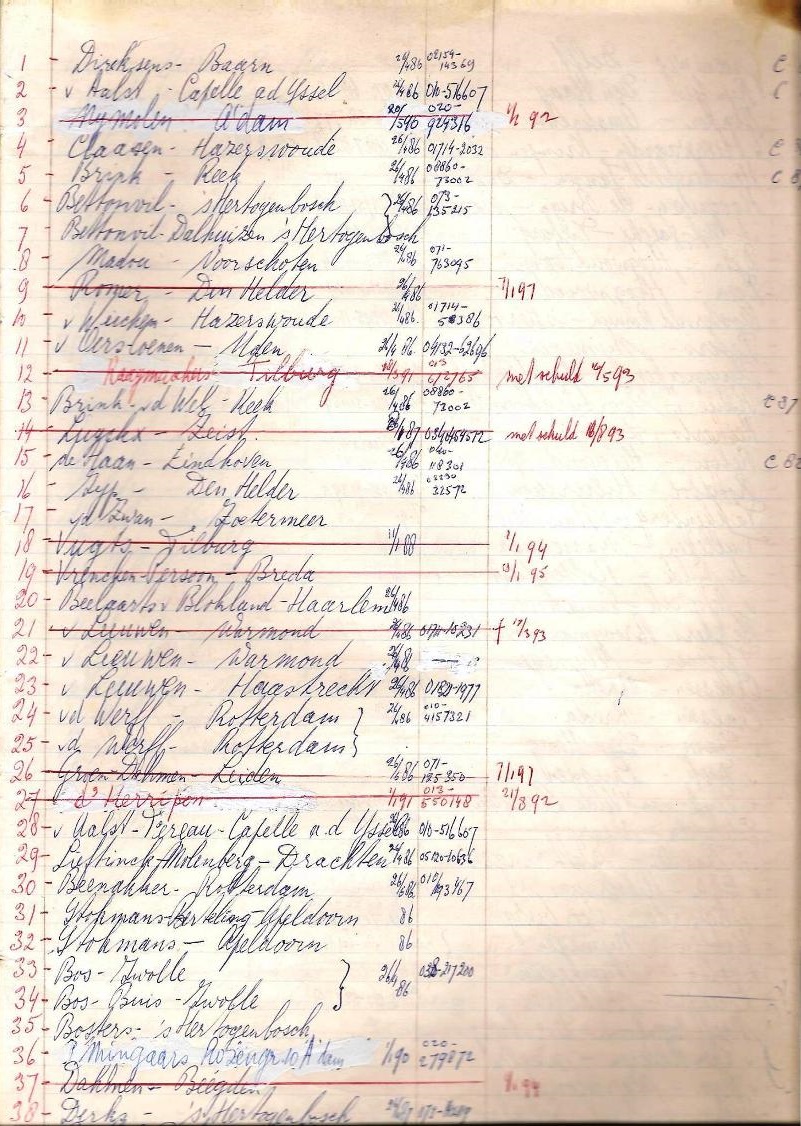 1 Direksens - Baarn 26/486 02159-14369 C
2 v Aalst - Capelle ad Yssel 26/486 010-516607 C
3 A'dam 020-924316 1/1 92
4 Claasen - Hazerswoude 26/486 01714-2032 C
5 Brink - Reek 26/486 08860-73002 C 8
6 Bettonvil - 'sHertogenbosch 26/486 073-135215
7 Bettonvil-Dalhuizen 'sHertogenbosch
8 Madou - Voorschoten 26/486 071-763095
9 Romer - Den Helder 26/486 1/197
10 v Wiechen - Hazerswoude 26/486 01714-
11 - Uden 26/4 86 04132-62696
12 Raaymakers Tilburg 013 672765 met schuld 93
13 Brink-vd Wel - Reek 26/486 08860-73002 C 87
14 - Zeist 87 met schuld 93
15 de Haan - Eindhoven 26/486 040-118301 C 8
16 - Den Helder 26/486 32572
17 vd Zwan - Zoetermeer
18 Vugts - Tilburg 1/1 88 1/1 94
19 Persoon - Breda 95
20 Beelaerts v Blokland - Haarlem 26/486
21 v Leeuwen - Warmond 26/486 † 393
22 v Leeuwen - Warmond 26/486
23 v Leeuwen - Haastrecht 26/486
24 vd Werff - Rotterdam 26/486 010-4157321
25 vd Werff - Rotterdam
26 Groen Dahmen - Leiden 26/486 071- 1/197
27 1/191 013-550148 21/892
28 v Aalst - - Capelle a.d Yssel 86 010-516607
29 Lieftinck-Molenberg - Drachten 26/486 05120-10636
30 Beenakker - Rotterdam 26/486 010/
31 Stokmans-Berteling-Apeldoorn 86
32 Stokmans - Apeldoorn 86
33 Bos - Zwolle 26/4 86 038-217200
34 Bos - Buis - Zwolle
35 Bosters - 'sHertogenbosch
36 Mingaars A'dam 1/190 020-279872
37 Dahmen - Beegden 94
38 Derks - 'sHertogenbosch